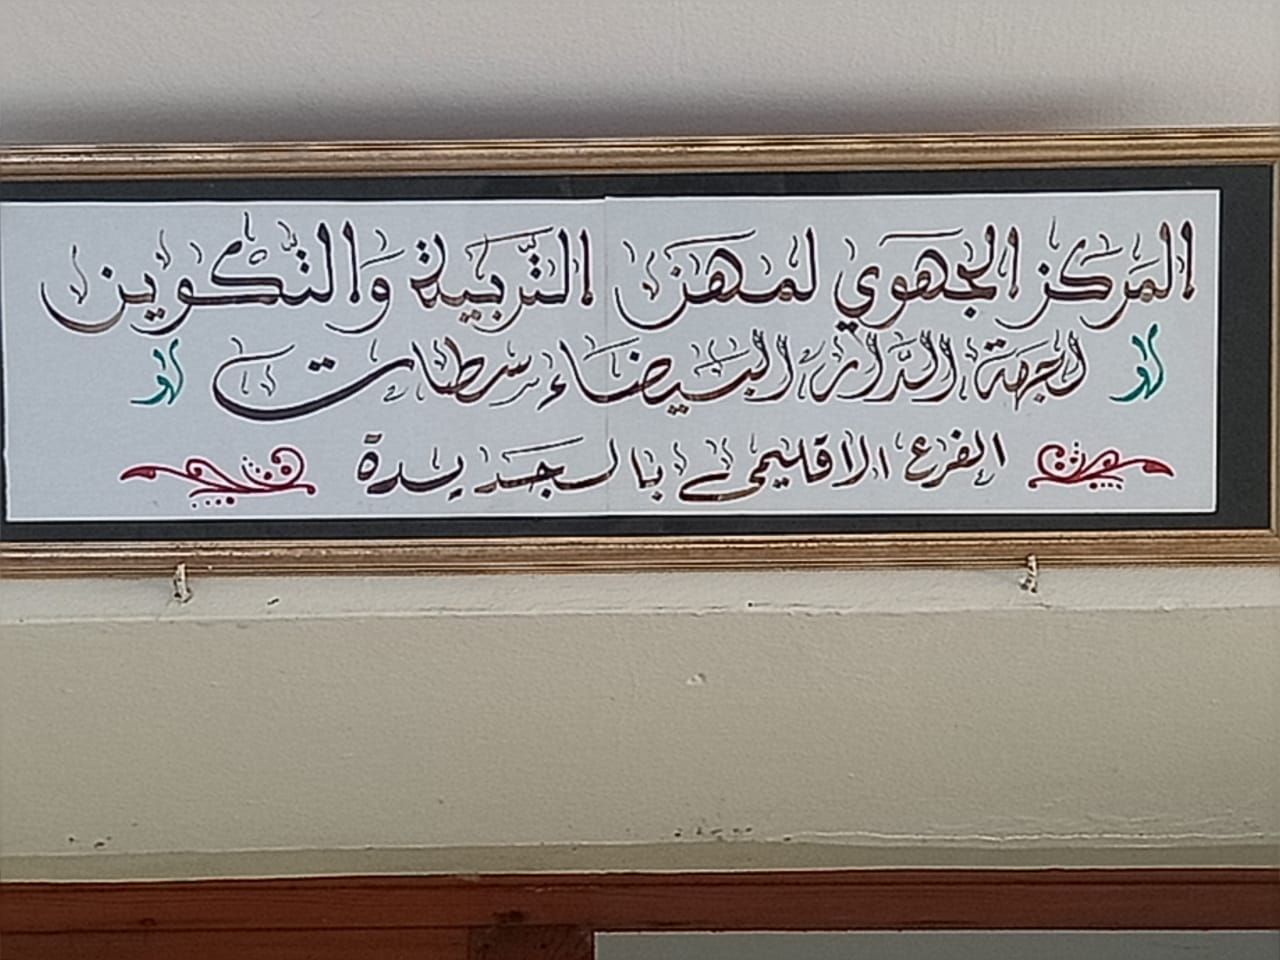 المركز الجهوي لمهن التربية والتكوين
لجهة الدار البيضاء سطات
الفرع الاقليمي بالجديدة